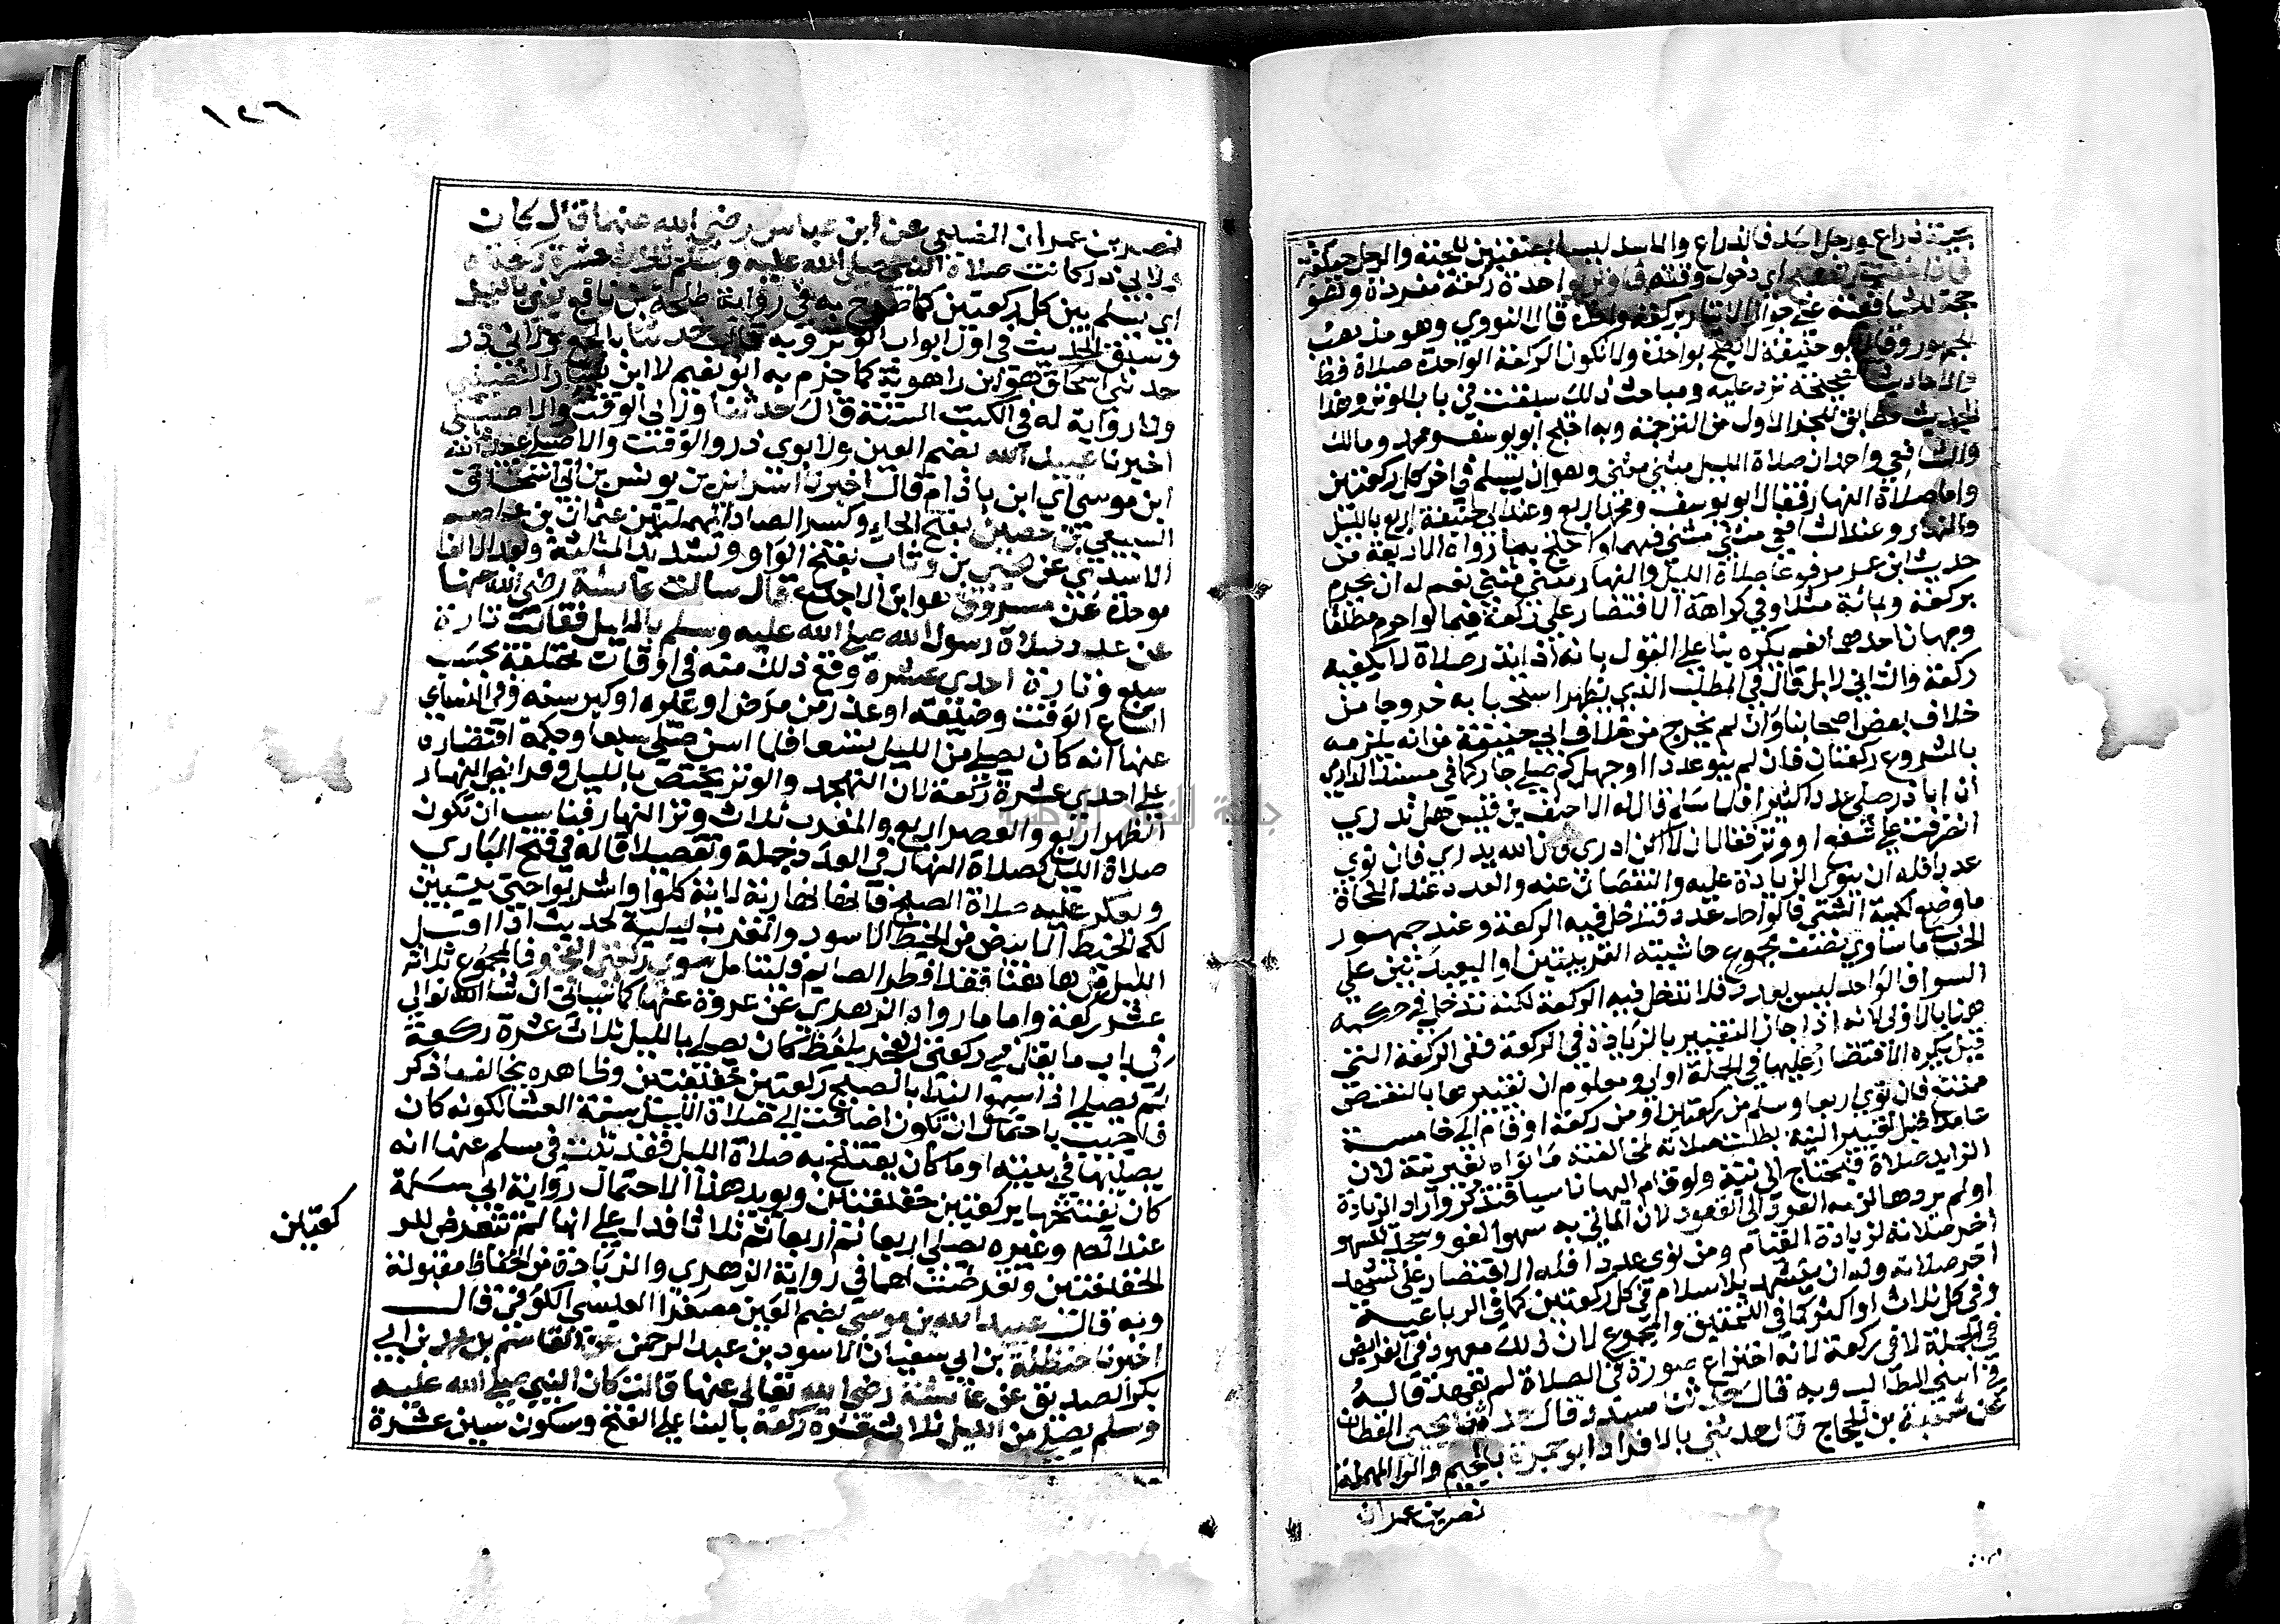 فان خفت الصبح اي دخول وقته فاوتر بواحدة ركعة مفردة وهو
حجة للشافعية علي جواز الايتار بركعة واحدة قال النووي وهو مذهب
الجمهور وقال ابو حنيفة لا يصح بواحدة ولا تكون الركعة الواحدة صلاة قط
والاحاديث الصحيحة ترد عليه ومباحث ذلك سبقت في باب الوتر وهذا
الحديث مطابق للجزء الاول من الترجمة وبه احتج ابو يوسف ومحمد ومالك
والشافعي واحمد ان صلاة الليل مثني مثني وهو ان يسلم في اخر كل ركعتين
واما صلاة النهار فقال ابو يوسف ومحمد اربع وعند ابي حنيفة اربع بالليل
والنهار وعند الشافعي مثني مثني فيهما واحتج بما رواه الاربعة من
حديث ابن عمر مرفوعا صلاة الليل والنهار مثني مثني نعم له ان يحرم
بركعة وبمائة مثلا وفي كراهة الاقتصار علي ركعة فيما لو احرم مطلقا
وجهان احدهما نعم يكره بنا علي القول بانه اذا نذر صلاة لا يكفيه
ركعة والثاني لا بل قال في المطلب الذي يظهر استحبابه خروجا من
خلاف بعض اصحابنا وان لم يخرج من خلاف ابي حنيفة من انه يلزمه
بالشروع ركعتان فان لم ينو عددا او جهل كم صلي جاز كما في مسند الدارمي
ان ابا ذر صلي عددا كثيرا فلما سلم قال له الاحنف بن قيس هل تدري
انصرفت علي شفع او وتر فقال ان لا اكن ادري فان الله يدري فان نوي
عددا فله ان ينوي الزيادة عليه والنقصان عنه والعدد عند النحاة
ما وضع لكمية الشي فالواحد عدد فتدخل فيه الركعة وعند جمهور
الحساب ما ساوي نصف مجموع حاشيتيه القريبتين او البعيدتين علي
السوا فالواحد ليس بعدد فلا تدخل فيه الركعة لكنه تدخل في حكمه
هنا بالاولي لانه اذا جاز التغيير بالزيادة في الركعة ففي الركعة التي
قيل يكره الاقتصار عليها في الجملة اولي ومعلوم ان تغييرها بالنقص
ممتنع فان نوي اربعا وسلم من ركعتين او من ركعة او قام الي خامسة
عامدا قبل تغيير النية بطلت صلاته لمخالفته ما نواه بغير نية لان
الزايد صلاة فيحتاج الي نية ولو قام اليها ناسيا فتذكر واراد الزيادة
او لم يردها لزمه العود الي القعود لان الماتي به سهوا لغو وسجد للسهو
اخر صلاته لزيادة القيام ومن نوي عددا فله الاقتصار علي تشهد
اخر صلاته وله ان يتشهد بلا سلام في كل ركعتين كما في الرباعية
وفي كل ثلاث او اكثر كما في التحقيق والمجموع لان ذلك معهود في الفرايض
في الجملة لا في ركعة لانه اختراع صورة في الصلاة لم تعهد قاله
في اسني المطالب وبه قال حدثنا مسدد قال حدثنا يحيي القطان
عن شعبة بن الحجاج قال حدثني بالافراد ابو جمرة بالجيم والرا المهملة
نصر بن عمران
١٤٦
نصر بن عمران الضبعي عن ابن عباس رضي الله عنهما قال كان
ولابي ذر كانت صلاة النبي صلي الله عليه وسلم ثلاث عشرة ركعة
اي يسلم بين كل ركعتين كما صرح به في رواية طلحة بن نافع يعني بالليل
وسبق الحديث في اول ابواب الوتر وبه قال حدثنا بالجمع ولابي ذر
حدثني اسحاق هو ابن راهوية كما جزم به ابو نعيم لا ابن سيار النصيبي
ولا رواية له في الكتب الستة قال حدثنا ولابي الوقت والاصيلي
اخبرنا عبيد الله بضم العين ولابوي ذر والوقت والاصيلي عبيد الله
ابن موسي اي ابن باذام قال اخبرنا اسرائيل بن يونس بن ابي اسحاق
السبيعي عن ابي حصين بفتح الحاء وكسر الصاد المهملتين عثمان بن عاصم
الاسدي عن يحيي بن وثاب بفتح الواو وتشديد المثلثة وبعد الالف
موحدة عن مسروق هو ابن الاجدع قال سالت عائشة رضي الله عنها
عن عدد صلاة رسول الله صلي الله عليه وسلم بالليل فقالت تارة
سبع وتارة احدي عشرة وقع ذلك منه في اوقات مختلفة بحسب
اتساع الوقت وضيقه او عذر من مرض او غيره او كبر سنه وفي النساي
عنها انه كان يصلي من الليل تسعا فلما اسن صلي سبعا وحكمة اقتصاره
علي احدي عشرة ركعة لان التهجد والوتر يختص بالليل وفرايض النهار
الظهر اربع والعصر اربع والمغرب ثلاث وتر النهار فناسب ان تكون
صلاة الليل كصلاة النهار في العدد جملة وتفصيلا قاله في فتح الباري
ويعكر عليه صلاة الصبح فانها نهارية لاية كلوا واشربوا حتي يتبين
لكم الخيط الابيض من الخيط الاسود والمغرب ليلية لحديث اذا اقبل
الليل من هاهنا فقد افطر الصايم وليتامل سوي ركعتي الفجر فالمجموع ثلاثة
عشر ركعة واما ما رواه الزهري عن عروة عنها كما سياتي ان شا الله تعالي
في باب ما يقرا في ركعتي الفجر بلفظ كان يصلي بالليل ثلاث عشرة ركعة
ثم يصلي اذا سمع الندا بالصبح ركعتين خفيفتين وظاهره يخالف ما ذكر
فاجيب باحتمال ان تكون اضافت الي صلاة الليل سنة العشا لكونه كان
يصليها في بيته او ما كان يفتتح به صلاة الليل فقد ثبت في مسلم عنها انه
كان يفتتحها بركعتين خفيفتين ويويد هذا الاحتمال رواية ابي سلمة
عند المص وغيره يصلي اربعا ثم اربعا ثم ثلاثا فدل علي انها لم تتعرض للر
كعتين
الخفيفتين وتعرضت لهما في رواية الزهري والزيادة من الحفاظ مقبولة
وبه قال حدثنا عبيد الله بن موسي بضم العين مصغرا العبسي الكوفي قال
اخبرنا حنظلة بن ابي سفيان الاسود بن عبد الرحمن عن القاسم بن محمد بن ابي
بكر الصديق عن عائشة رضي الله تعالي عنها قالت كان النبي صلي الله عليه
وسلم يصلي من الليل ثلاث عشرة ركعة بالبنا علي الفتح وسكون شين عشرة